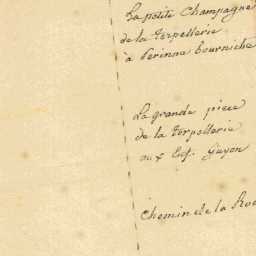 La petite Champagne
de la Terpellerie
a Perinne bourniche
La grande piece
de la Terpellerie
aux Enf. Guyon
Chemin de la Ro